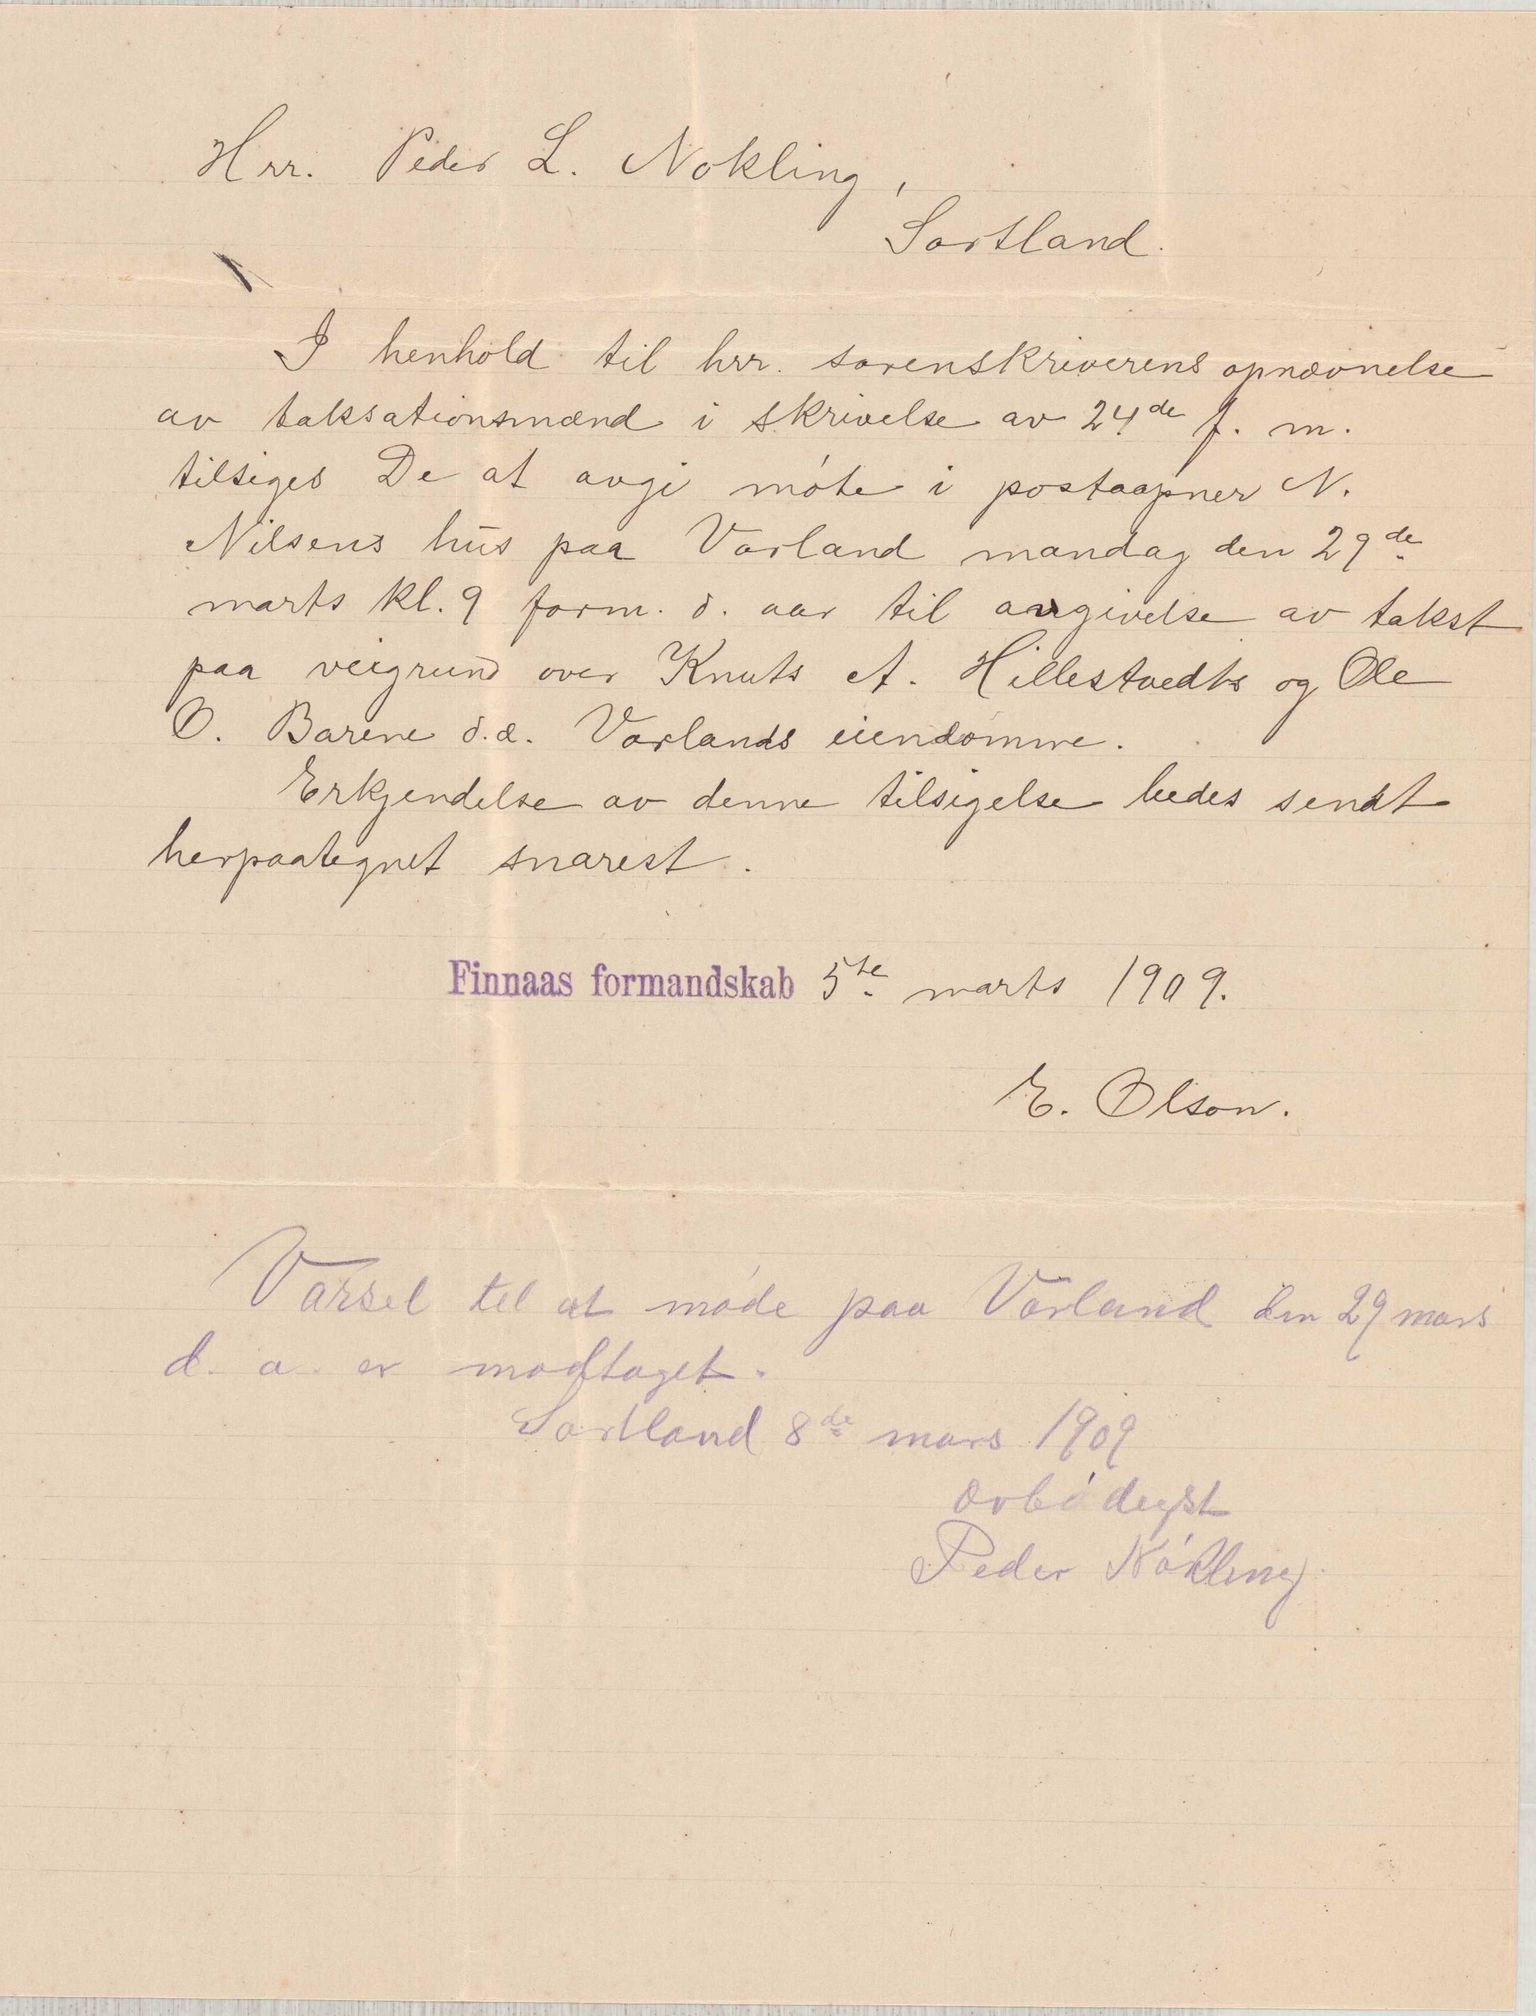 Hrr. Peder L. Nøkling,
Sortland.
I henhold til hrr. sorenskriverens opnævnelse
av taksationsmænd i skrivelse av 24de f. m.
tilsiges De at avgi møte i postaapner N.
Nilsens hus paa Vorland mandag den 29de
marts kl. 9 form. d. aar til avgivelse av takst
paa veigrund over Knuts A. Hillestvedts og Ole
O. Barene d.æ. Vorlands eiendomme.
Erkjendelse av denne tilsigelse bedes sendt
herpaategnet snarest.
Finnaas formandskab 5te marts 1909.
E. Olson.
Varsel til at møde paa Vorland den 29 mars
d. a. er modtaget.
Sortland 8de mars 1909
ærbødigst
Peder Nøkling.